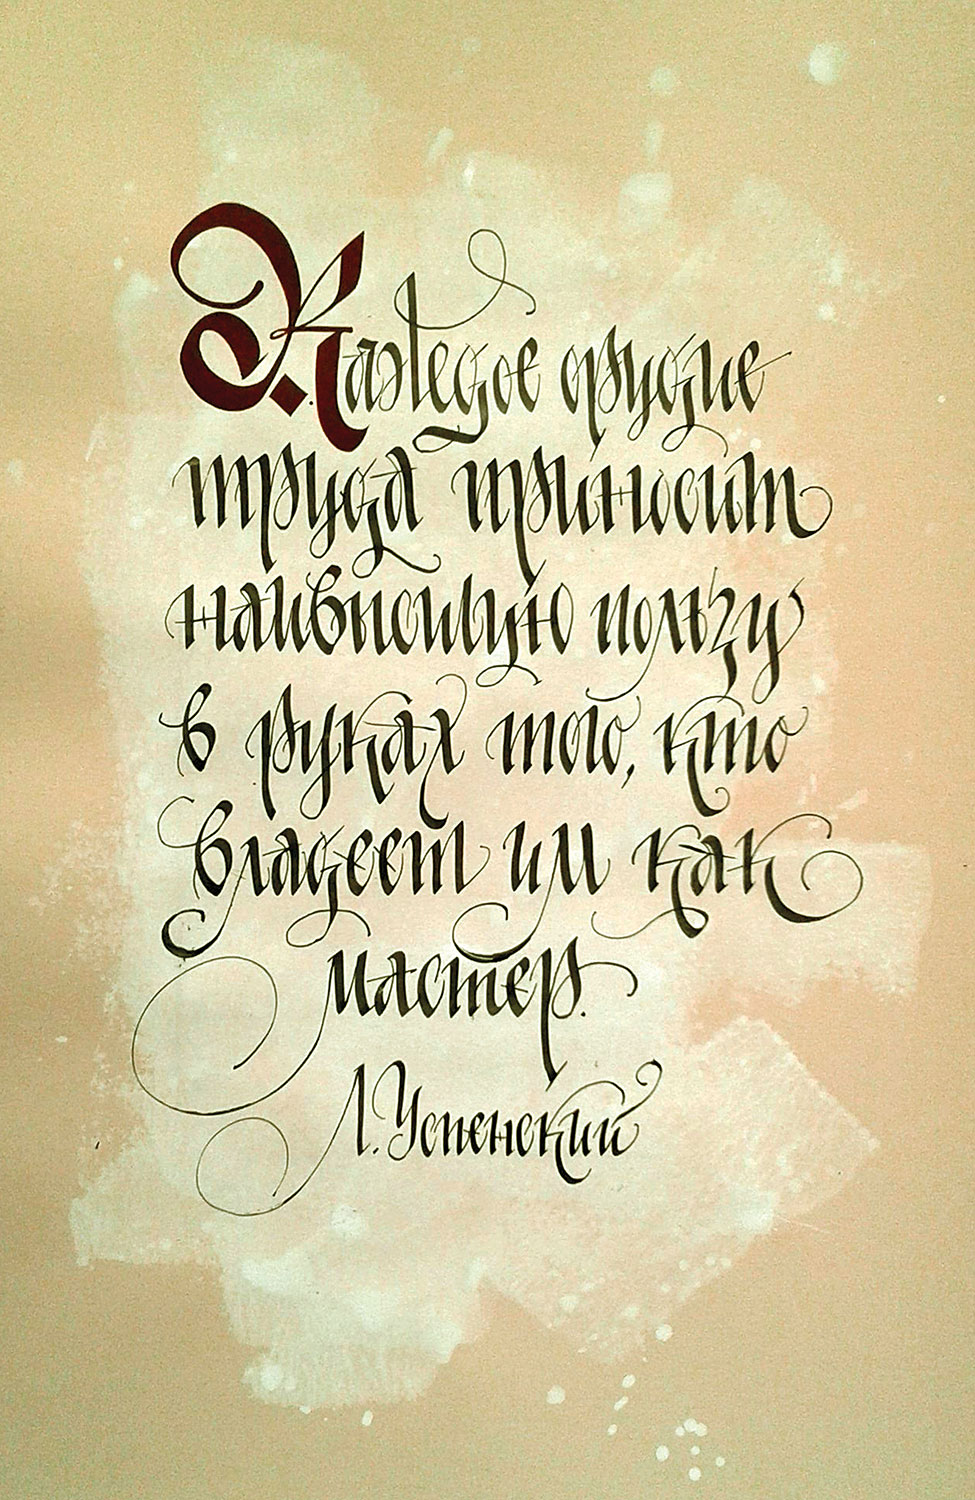 Каждое орудие
труда приносит
наивысшую пользу
в руках того, кто
владеет им как
мастер.
Л. Успенский